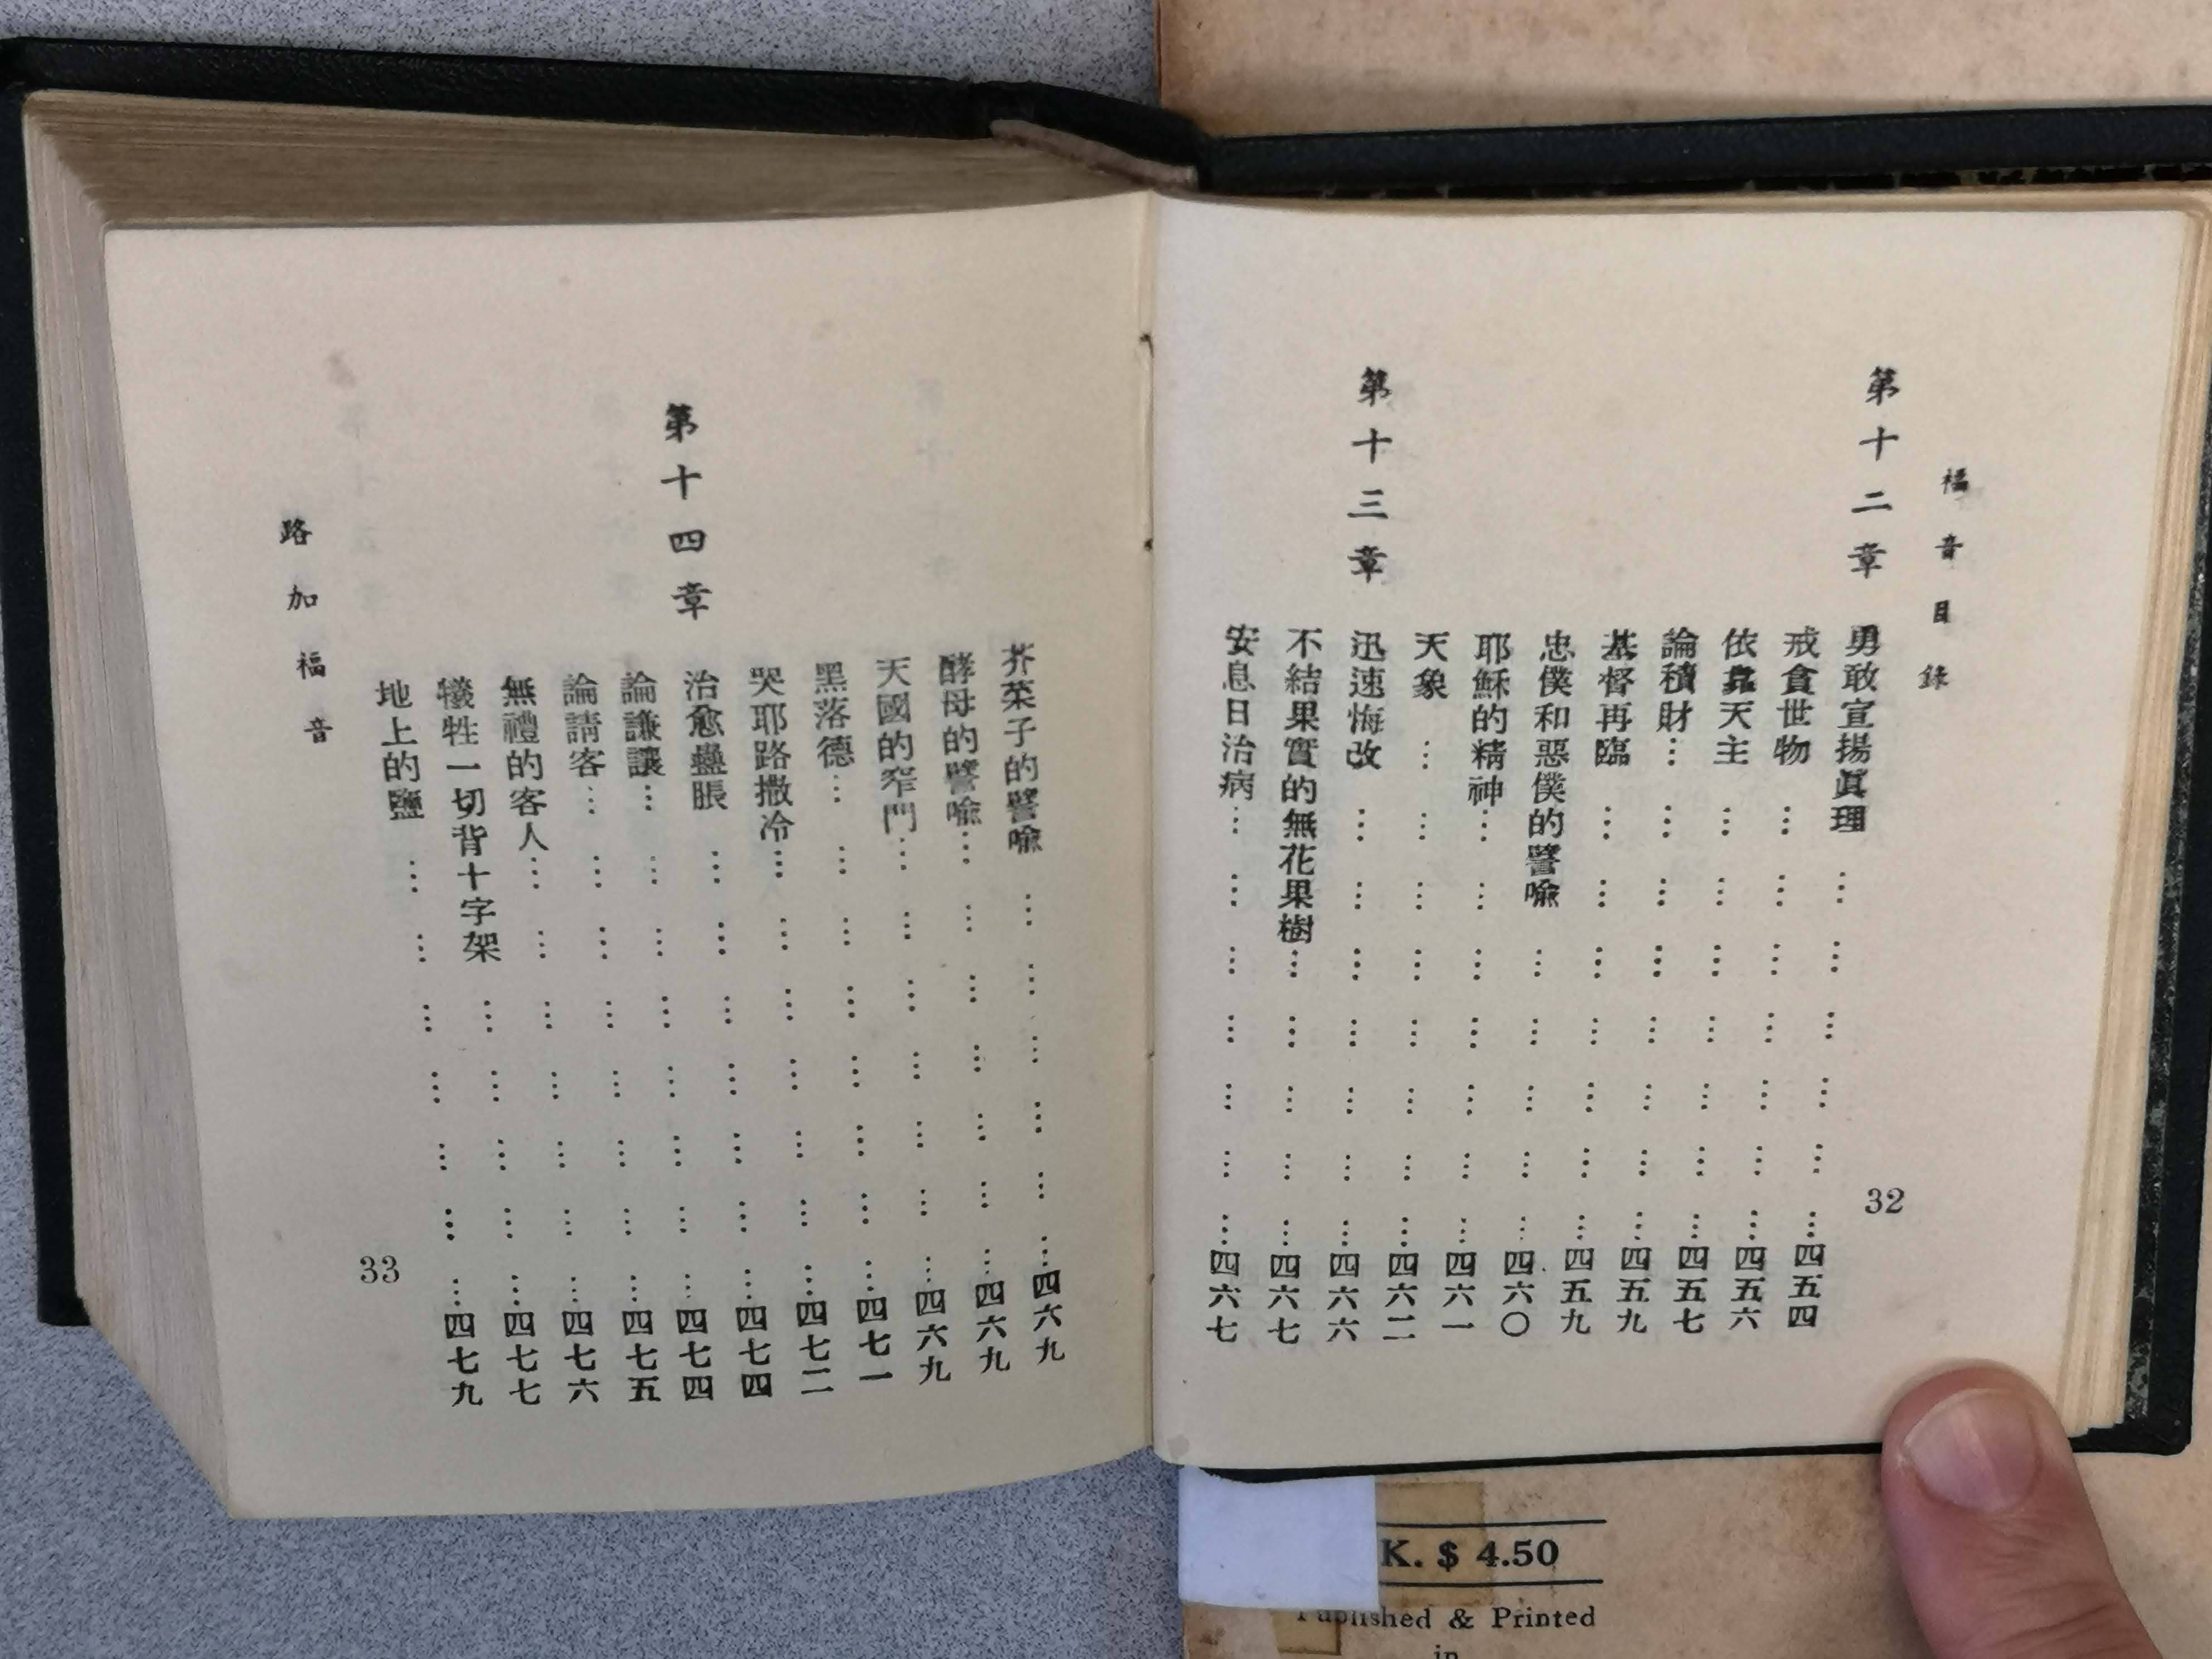 福音目錄
第十二章
勇敢宣揚眞理 … … … … … …四五四
戒貪世物 … … … … … … …四五六
依靠天主 … … … … … … …四五七
論積財… … … … … … … …四五九
基督再臨 … … … … … … …四五九
忠僕和惡僕的譬喩 … … … … …四六〇
耶穌的精神… … … … … … …四六一
天象 … … … … … … … …四六二
第十三章
迅速悔改 … … … … … … …四六六
不結果實的無花果樹… … … … …四六七
安息日治病… … … … … … …四六七
32
芥菜子的譬喩 … … … … … …四六九
酵母的譬喩… … … … … … …四六九
天國的窄門… … … … … … …四六九
黑落德… … … … … … … …四七一
哭耶路撒冷… … … … … … …四七二
第十四章
治愈蠱脹 … … … … … … …四七四
論謙讓… … … … … … … …四七四
論請客… … … … … … … …四七五
無禮的客人… … … … … … …四七六
犧牲一切背十字架 … … … … …四七七
地上的鹽 … … … … … … …四七九
路加福音
33
K. $ 4.50
Published & Printed
in